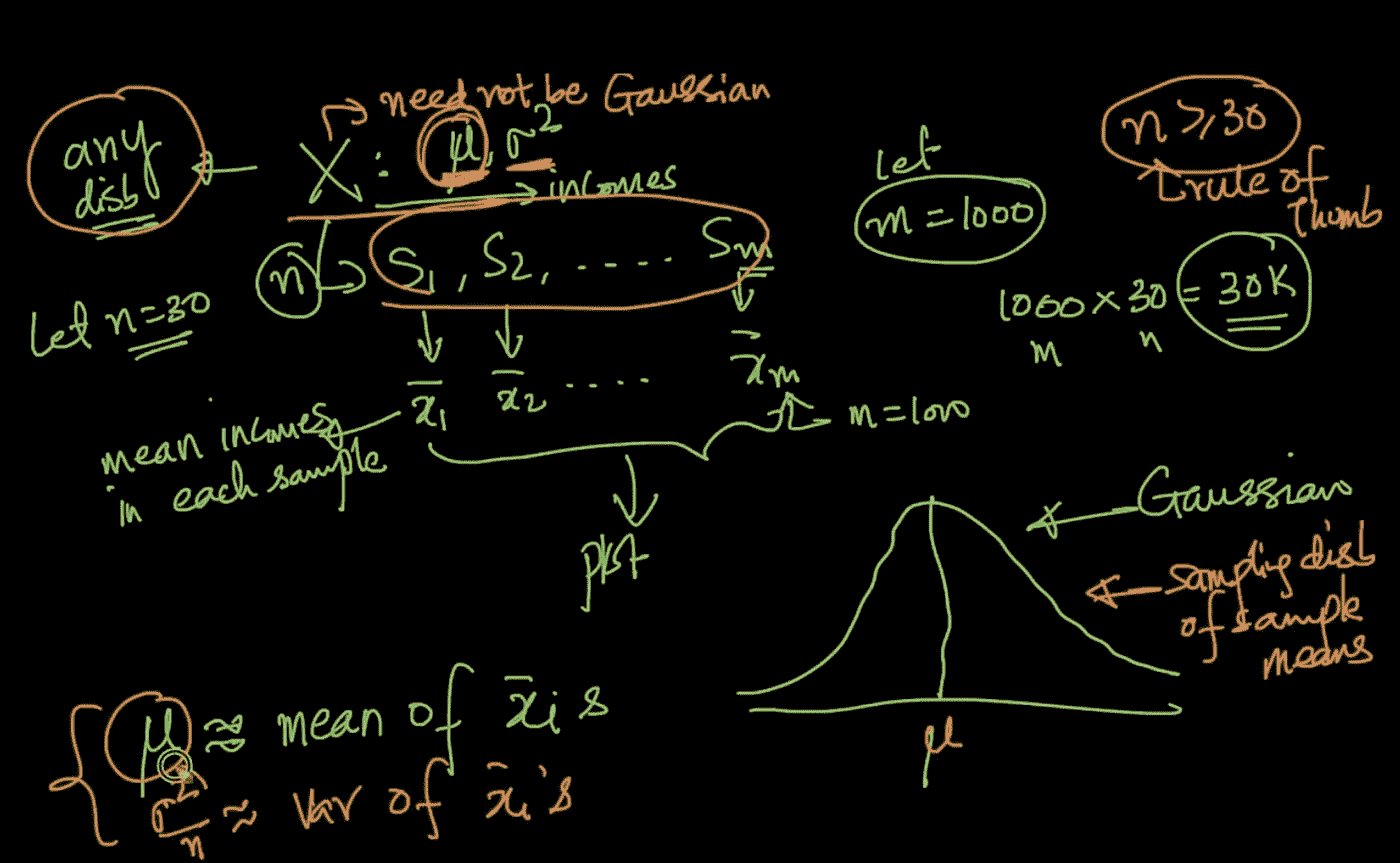 need not be Gaussian
any
disb
X : μ, σ²
incomes
n
S₁, S₂, ..... Sₘ
Let n=30
x̄₁ x̄₂ ..... x̄ₘ
m=1000
mean incomes
in each sample
plot
Let
m = 1000
n ≥ 30
rule of
Thumb
1000 × 30 = 30K
m n
Gaussian
Sampling disb
of sample
means
μ
μ ≈ mean of x̄ᵢ s
σ²/n ≈ var of x̄ᵢ's